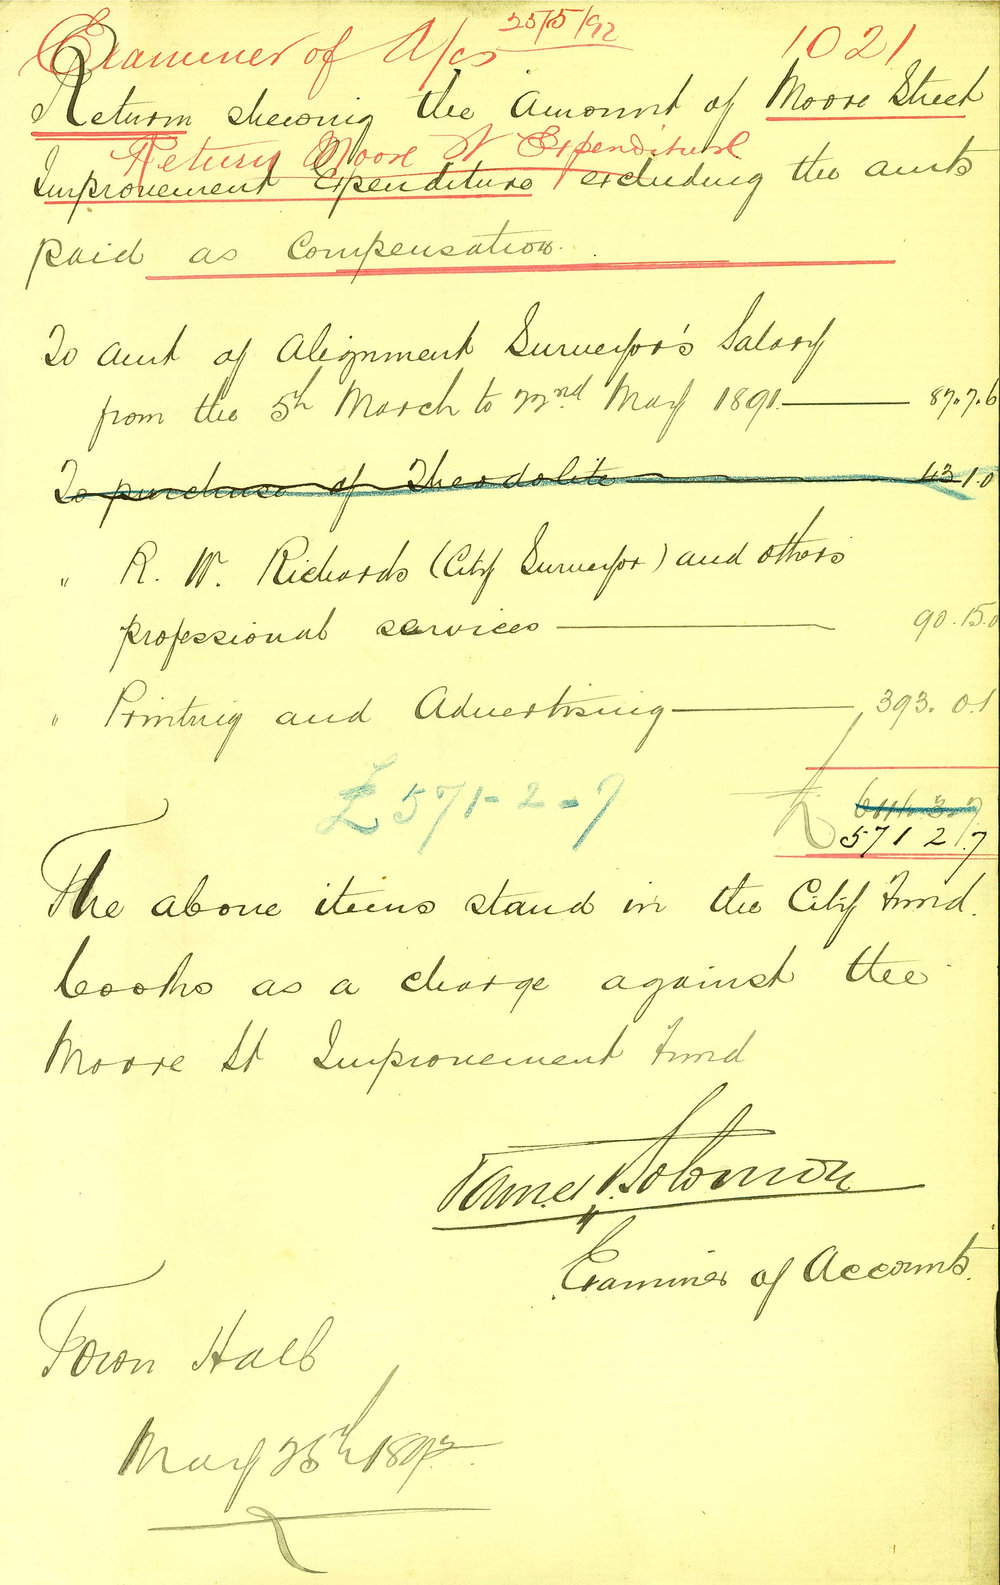 Examiner of A/cs 25/5/92 1021
Return shewing the Amount of Moore Street
Return Moore St Expenditure
Improvement Expenditure excluding the amts
paid as Compensation.
To Amt of Alignment Surveyor's Salary
from the 5th March to 22nd May 1891. 87.7.6
To purchase of Theodolite 43.1.0
" R. W. Richards (City Surveyor) and others
professional services 90.15.0
" Printing and Advertising 393.0.1
£571-2-7
£ 614.3.7
571 2.7
The above items stand in the City Fund.
books as a charge against the
Moore St Improvement Fund
James Solomon
Examiner of Accounts.
Town Hall
May 25th 1892